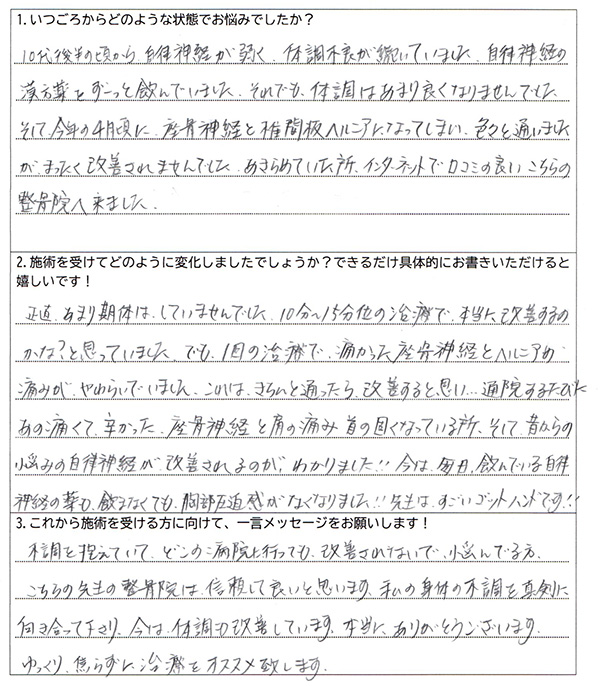 1. いつごろからどのような状態でお悩みでしたか？
10代後半の頃から、自律神経が弱く、体調不良が続いていました。自律神経の
漢方薬をずーっと飲んでいました。それでも、体調はあまり良くなりませんでした。
そして今年の4月頃に、座骨神経と椎間板ヘルニアになってしまい、色々と通いました
が、まったく改善されませんでした。あきらめていた所、インターネットで口コミの良い こちらの
整骨院へ来ました。
2. 施術を受けてどのように変化しましたでしょうか？できるだけ具体的にお書きいただけると
嬉しいです！
正直、あまり期体は、していませんでした。10分〜15分位の治療で、本当に改善するの
かな？と思っていました。でも、1回の治療で、痛かった座骨神経とヘルニアの
痛みが、やわらいでいました。これは、きちんと通ったら、改善すると思い…通院するたびに
あの痛くて、辛かった、座骨神経と肩の痛み 首の固くなっている所、そして、昔からの
悩みの自律神経が、改善されるのが、わかりました!! 今は、毎日、飲んでいる自律
神経の薬も、飲まなくても、胸部圧迫感がなくなりました!! 先生は、すごいゴットハンドです!!
3. これから施術を受ける方に向けて、一言メッセージをお願いします！
不調を抱えていて、どこの病院に行っても、改善されないで、悩んでる方、
こちらの先生の整骨院は、信頼して良いと思います。私の身体の不調を真剣に
向き合って下さり、今は、体調も改善しています。本当に、ありがとうございます。
ゆっくり、焦らずに治療をオススメ致します。